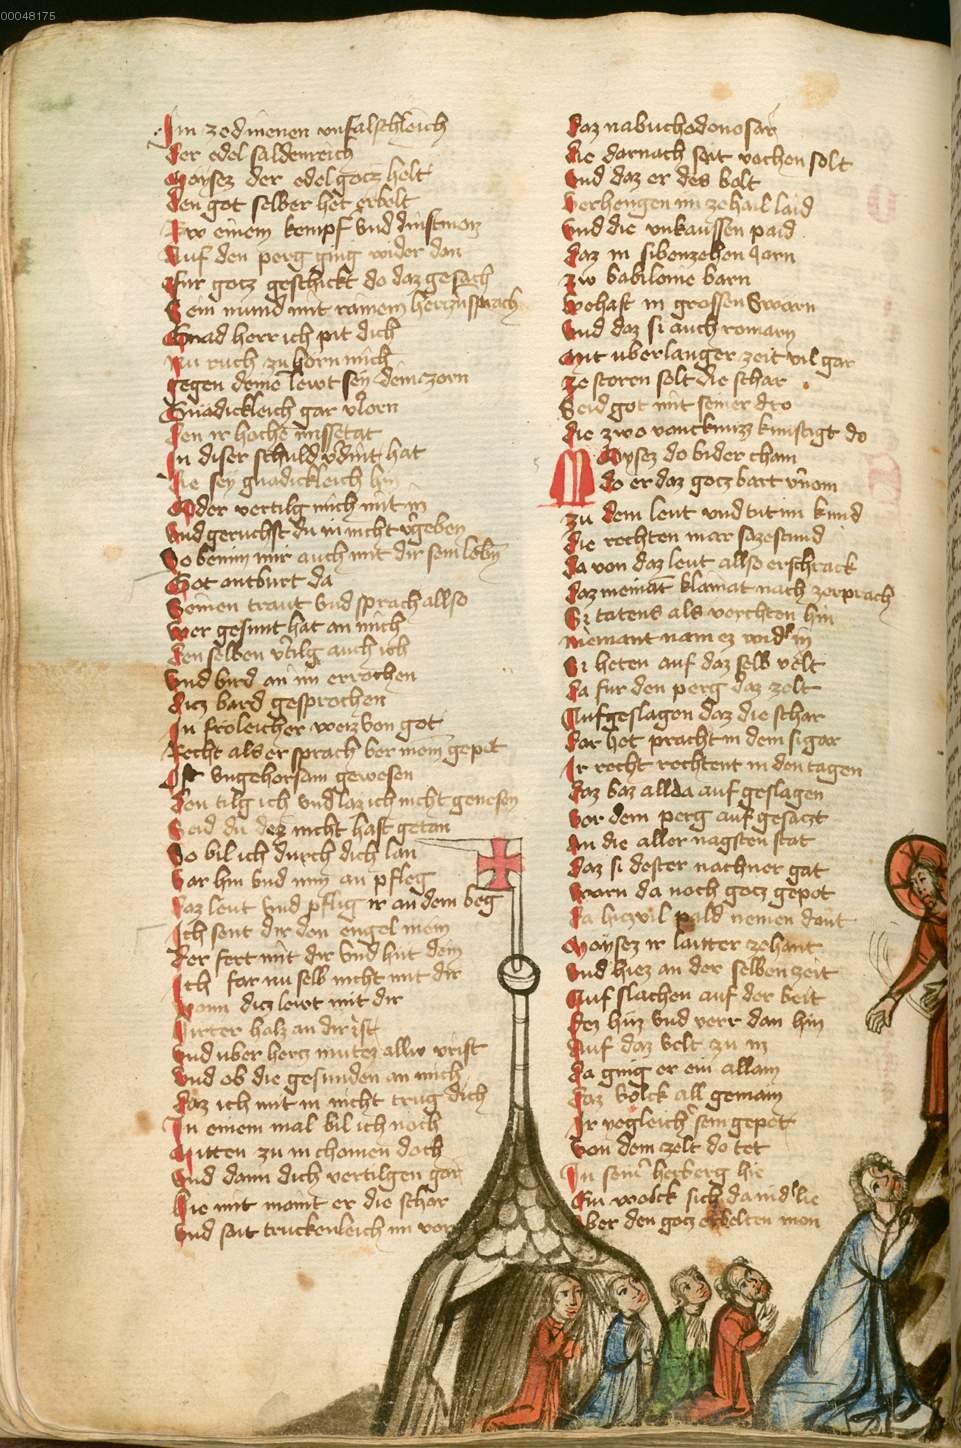 00048175
Im ze dienen unfalschleich
Der edel saldenreich
Moysez der edel gotz helt
Den got selber het erbelt
Zw einem kempf und dinstman
Auf den perg ging wider dan
Fur gotz geschickt do daz gesach
Sein mund mit rainem herczn sprach
Gnad herr ich pit dich
Nu ruch zu horn mich
Gegen deinē lewt sey dein zorn
Gnadickleich gar vlorn
Den ir hoche missetat
In diser schuld vdint hat
Die sey gnadickleich hin
Oder vertilg mich mit in
Und geruchst du in nicht vgeben
So benim mir auch mit dir sein lebn
Got antburt da
Seinen traut und sprach allso
Wer gesunt hat an mich
Den selben vtilg auch ich
Und bird an im errochen
Dicz bard gesprochen
In froleicher weiz von got
Recht als er sprach ber mein gepot
Ist ungehorsam gewesen
Den tilg ich und laz ich nicht genesen
Seid du dez nicht hast getan
So bil ich durch dich lan
Var hin und nim an pfleg
Daz leut und pflig ir an dem beg
Ich sent dir den engel mein
Der fert mit dir und hut dein
Ich far nu selb nicht mit dir
Wann dicz lewt mit dir
Hirter halz an dir ist
Und uber hercz mutez allw vrist
Und ob die gesunden an mich
Daz ich mit in nicht trug dich
In einem mal bil ich noch
Mitten zu in chomen doch
Und dann dich vertilgen gar
Hie mit maint er die schar
Und sait truckenleich im vor
Daz nabuchodonosar
Die darnach seit vochen solt
Und daz er des bolt
Verhengen im ze hail laid
Und die vnkaussen paid
Daz in sibenzehen Jarn
Zw babilonie barn
Behaft in grossen swarn
Und daz si auch romarn
Mit uber langer zeit vil gar
Ze storen solt die schar
Seid got mit seiner dro
Die zwo vancknuzz kunftigt do
Moysez do bider cham
do er daz gocz bart vnom
Zu dem leut und tut im kund
Die rechten mar sa ze stund
Da von daz leut allso erschrack
Daz meinat klainat nach zerprach
Si tatens als vorchten hin
Niemant nam ez widr in
Si heten auf daz selb velt
Da fur den perg daz zelt
Aufgeslagen daz die schar
Dar het pracht in dem si gar
Ir recht rechtent in den tagen
Daz baz allda auf geslagen
Vor dem perg auf gesaczt
In die aller nagsten stat
Daz si dester nachner gat
Warn da noch gocz gepot
Da hiez vil pald nemen dant
Moysez ir lautter ze hant
Und hiez an der selben zeit
Auf slachen auf der beit
Dez hin und verr dan hin
Auf daz velt zu in
Da ging er ein allain
Daz volck all gemain
Ir yegleich sein gepet
Von dem zelt do tet
In seinr herberg hie
Ein wolck sich da nidr lie
Uber den gocz erbelten mon